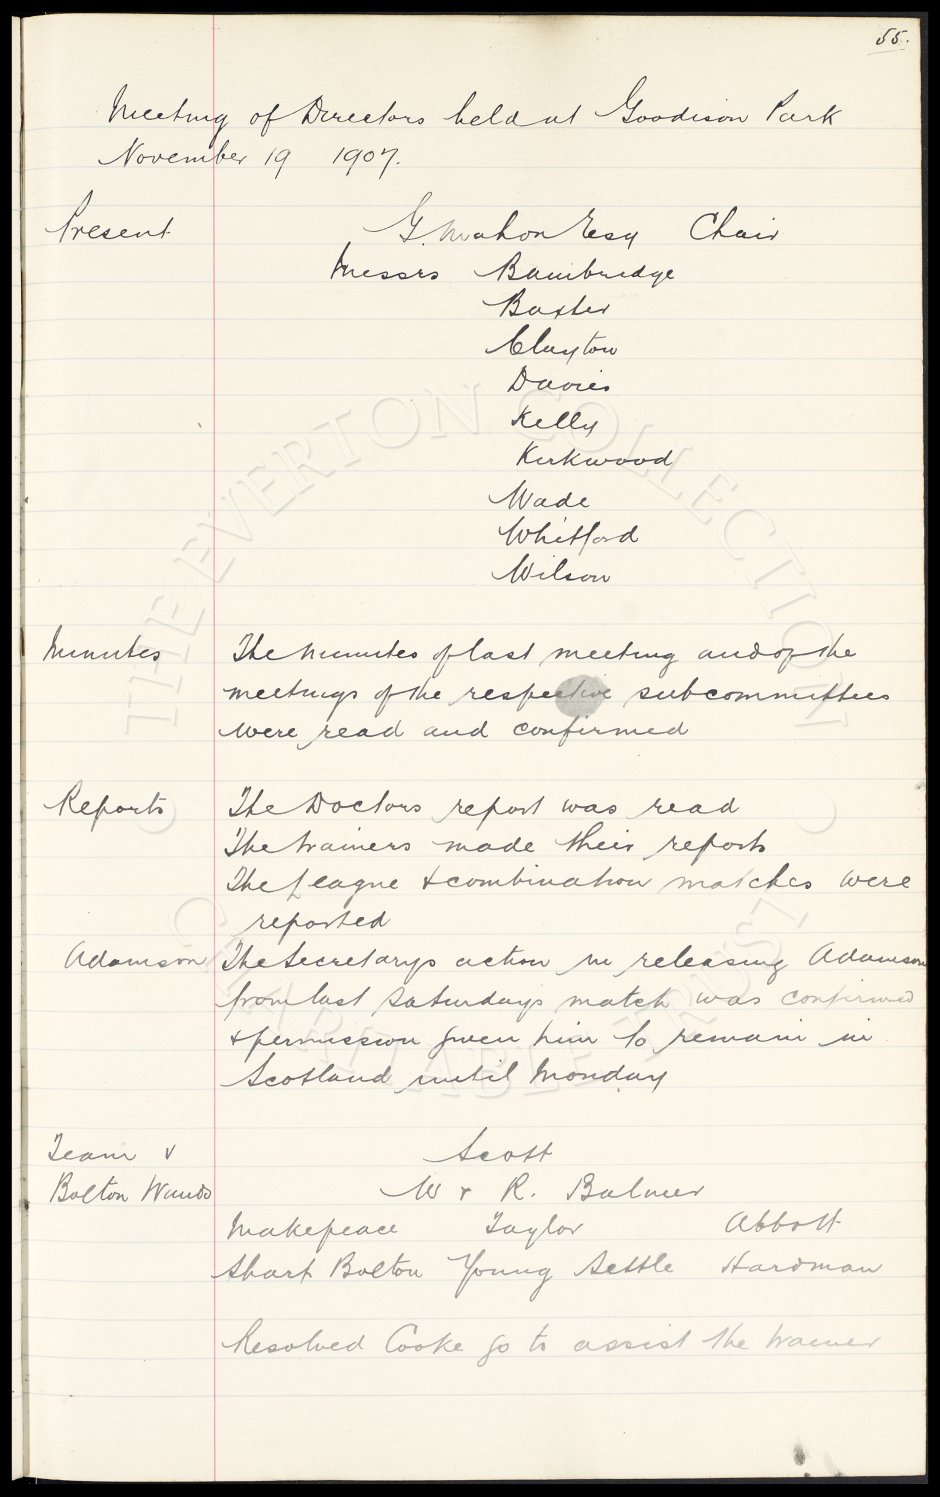 55.
Meeting of Directors held at Goodison Park
November 19 1907.
Present G. Mahon Esq Chair
Messrs Bainbridge
Baxter
Clayton
Davies
Kelly
Kirkwood
Wade
Whitford
Wilson
Minutes The Minutes of last meeting and of the
meetings of the respective subcommittees
were read and confirmed
Reports The Doctors report was read
The trainers made their reports
The League & combination matches were
reported
Adamson The Secretarys action in releasing Adamson
from last Saturdays match was confirmed
& permission given him to remain in
Scotland until Monday
Team v Scott
Bolton Wands W & R. Balmer
Makepeace Taylor Abbott
Sharp Bolton Young Settle Hardman
Resolved Cooke go to assist the trainer
THE EVERTON COLLECTION
CHARITABLE TRUST